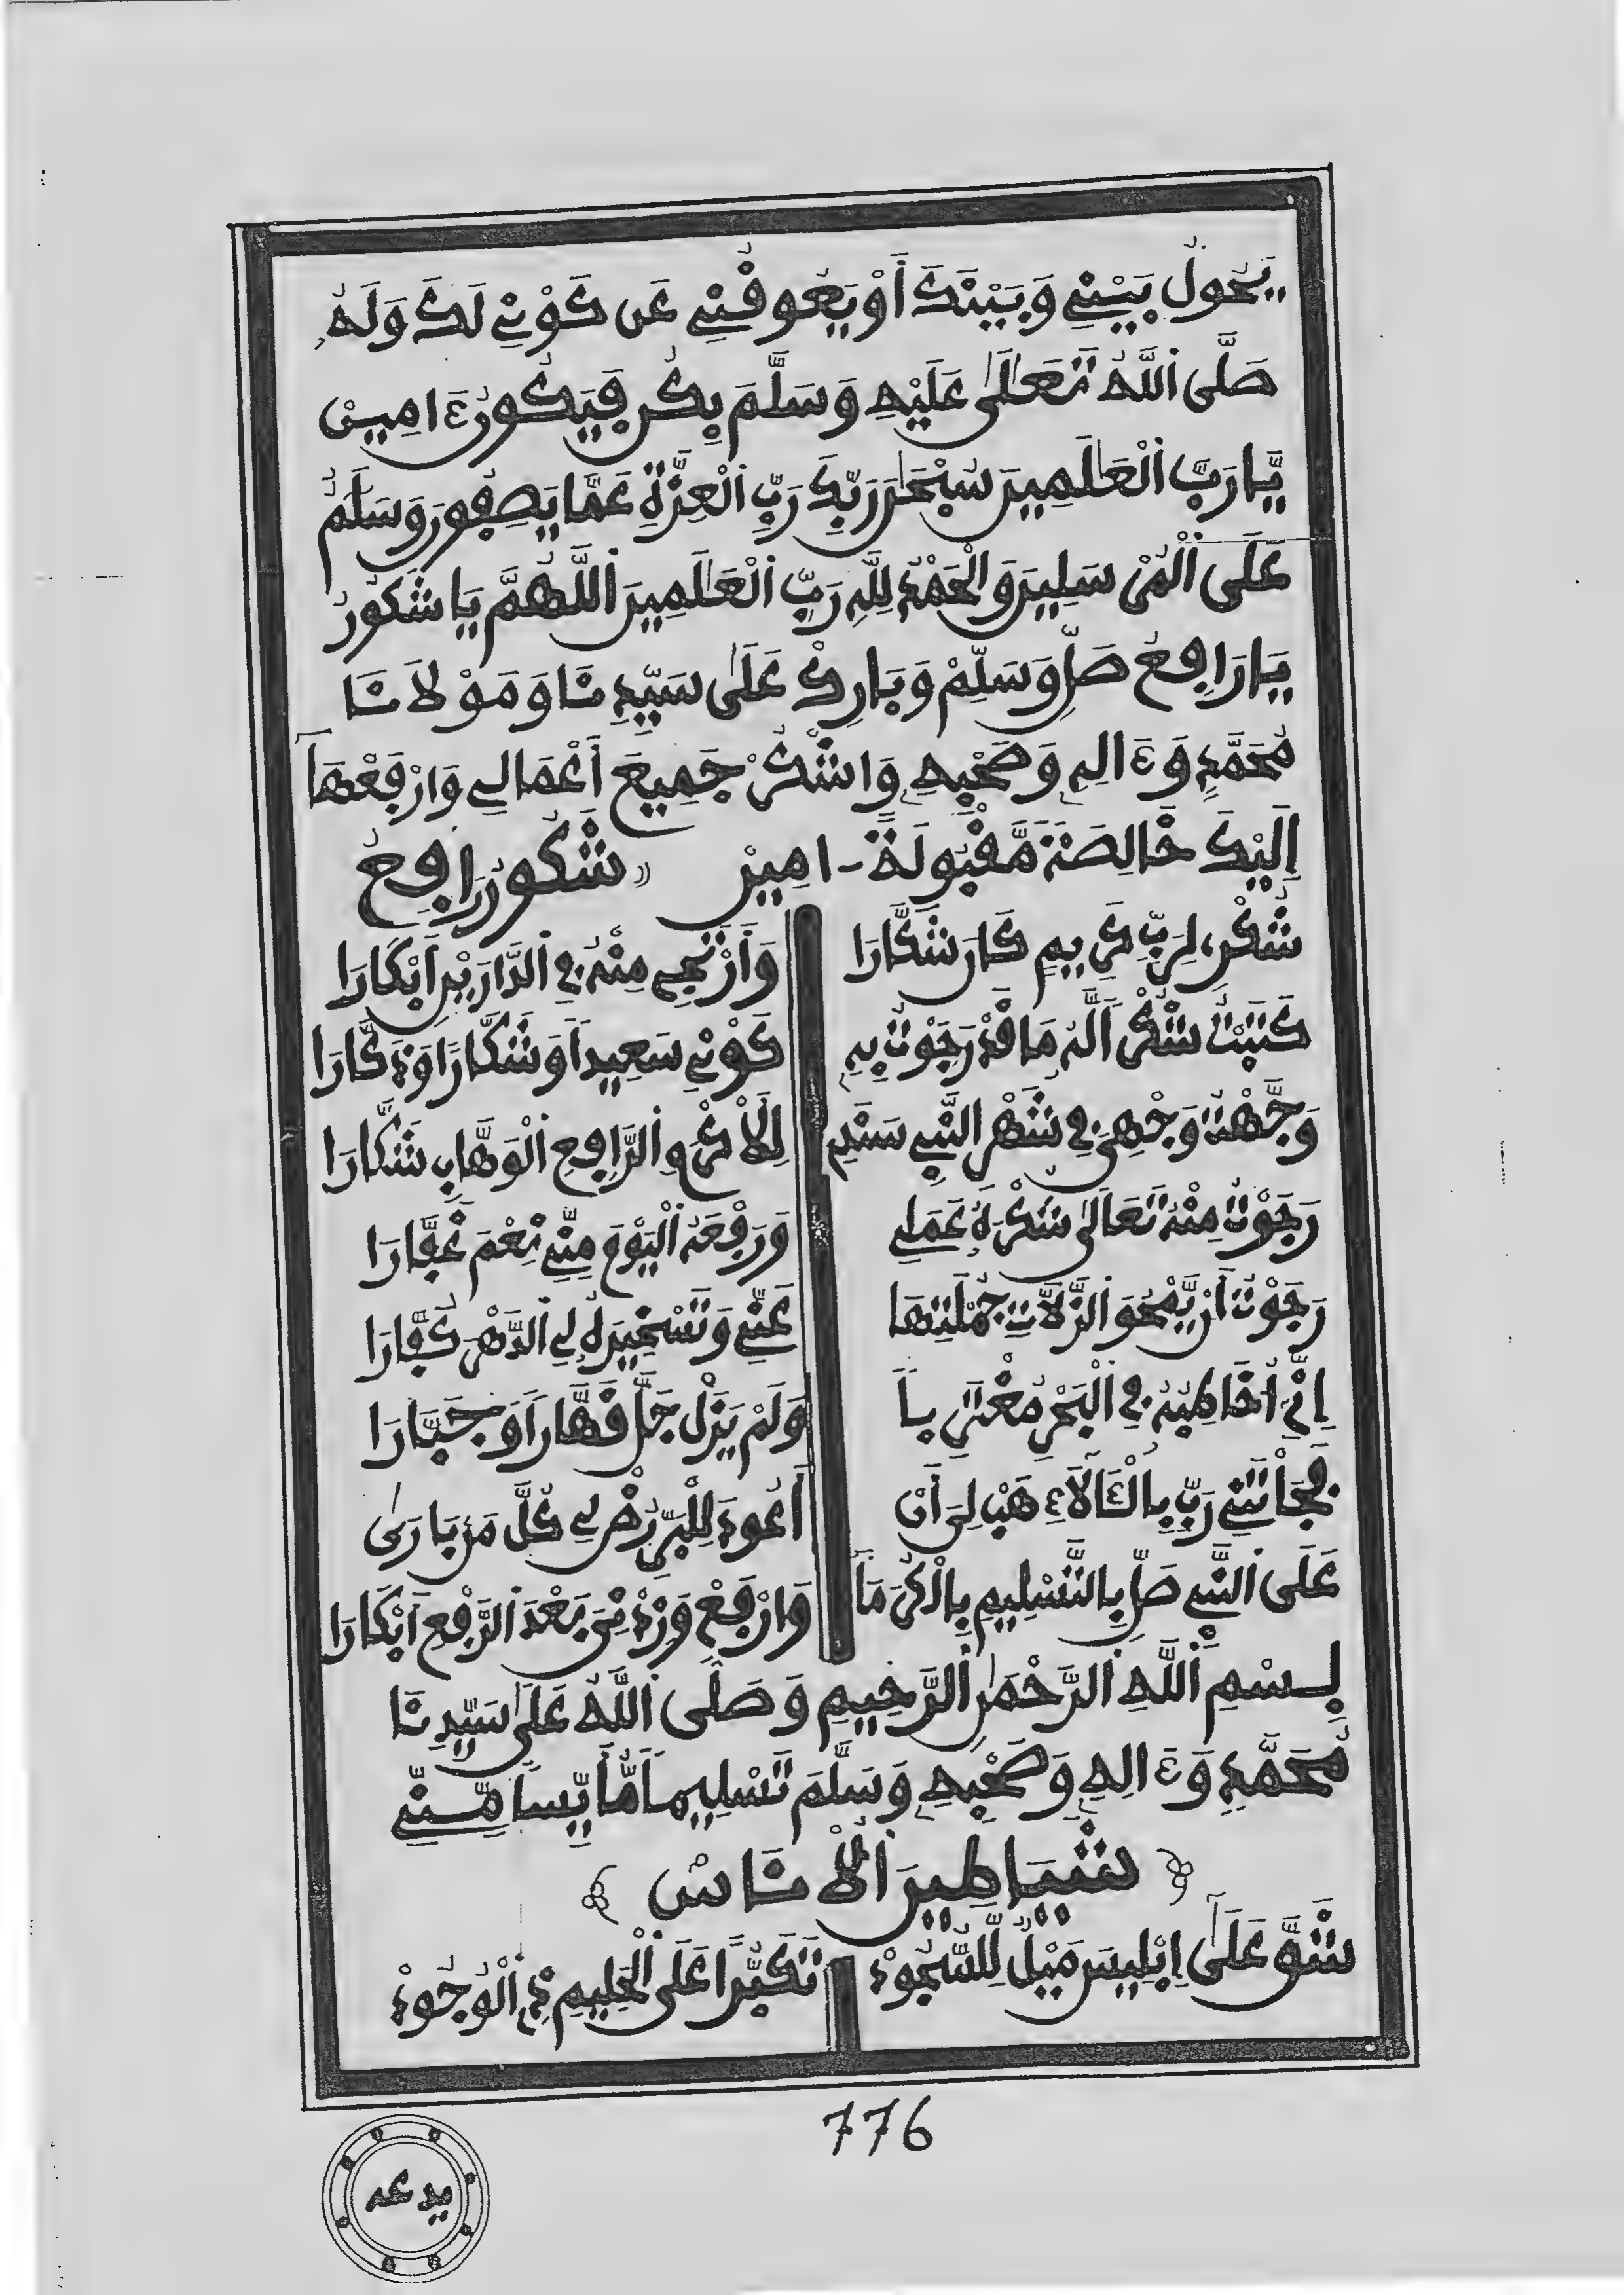 يَحُولُ بَيْنِي وَبَيْنَكَ أَوْ يَعُوقُنِي عَن كَوْنِي لَكَ وَلَهُ
صَلَّى اللَّهُ تَعَالَى عَلَيْهِ وَسَلَّمَ بِكُن فَيَكُونُ ءَامِينَ
يَا رَبَّ الْعَالَمِينَ سُبْحَانَ رَبِّكَ رَبِّ الْعِزَّةِ عَمَّا يَصِفُونَ وَسَلَامٌ
عَلَى الْمُرْسَلِينَ وَالْحَمْدُ لِلَّهِ رَبِّ الْعَالَمِينَ اللَّهُمَّ يَا شَكُورُ
يَا رَافِعُ صَلِّ وَسَلِّمْ وَبَارِكْ عَلَى سَيِّدِنَا وَمَوْلَانَا
مُحَمَّدٍ وَءَالِهِ وَصَحْبِهِ وَاشْكُرْ جَمِيعَ أَعْمَالِي وَارْفَعْهَا
إِلَيْكَ خَالِصَةً مَّقْبُولَةً ـ امِينَ شَكُورٌ رَافِعٌ
شُكْرِي لِرَبٍّ كَرِيمٍ كَانَ شَكَّارَا وَأَرْتَجِي مِنْهُ فِي الدَّارَيْنِ أَبْكَارَا
كَتَبْتُ شُكْرَ الَّذْ مَا قَدْ رَجَوْتُ بِهِ كَوْنِي سَعِيداً وَشَكَّاراً وَذَكَّارَا
وَجَّهْتُ وَجْهِيَ فِي شَهْرِ النَّبِي سَنَدِي لِلْأَكْرَمِ الرَّافِعِ الْوَهَّابِ شَكَّارَا
رَجَوْتُ مِنْهُ تَعَالَى شُكْرَهُ عَمَلِي وَرَفْعَهُ الْيَوْمَ مِنِّي نِعْمَ غَفَّارَا
رَجَوْتُ أَن يَّمْحُوَ الزَّلَّاتِ جُمْلَتَهَا عَنِّي وَتَسْخِيرَهُ لِي الدَّهْرَ كُفَّارَا
إِنِّي أُخَاطِبُهُ فِي الْبَحْرِ مُغْتَرِبَا وَلَمْ يَزَلْ جَلَّ قَهَّاراً وَجَبَّارَا
نَجَّأْتَنِي رَبِّ بِالْـَالَاءِ هَبْ لِيَ أَنْ أَعُودَ لِلْبَرِّ رُضْ لِي كُلَّ مَن بَارَى
عَلَى النَّبِي صَلِّ بِالتَّسْلِيمِ بِالْكُرَمَا وَارْفَعْ وَزِدْنِيَ بَعْدَ الرَّفْعِ أَبْكَارَا
بِسْمِ اللَّهِ الرَّحْمَنِ الرَّحِيمِ وَصَلَّى اللَّهُ عَلَى سَيِّدِنَا
مُحَمَّدٍ وَءَالِهِ وَصَحْبِهِ وَسَلَّمَ تَسْلِيماً مُّأَيِّساً مِّنِّي
شَيَاطِينَ الْأُنَاسْ
شَقَّ عَلَى إِبْلِيسَ مَيْلٌ لِلسُّجُودْ تَكَبُّراً عَلَى الْحَلِيمِ ذِي الْوُجُودْ
776